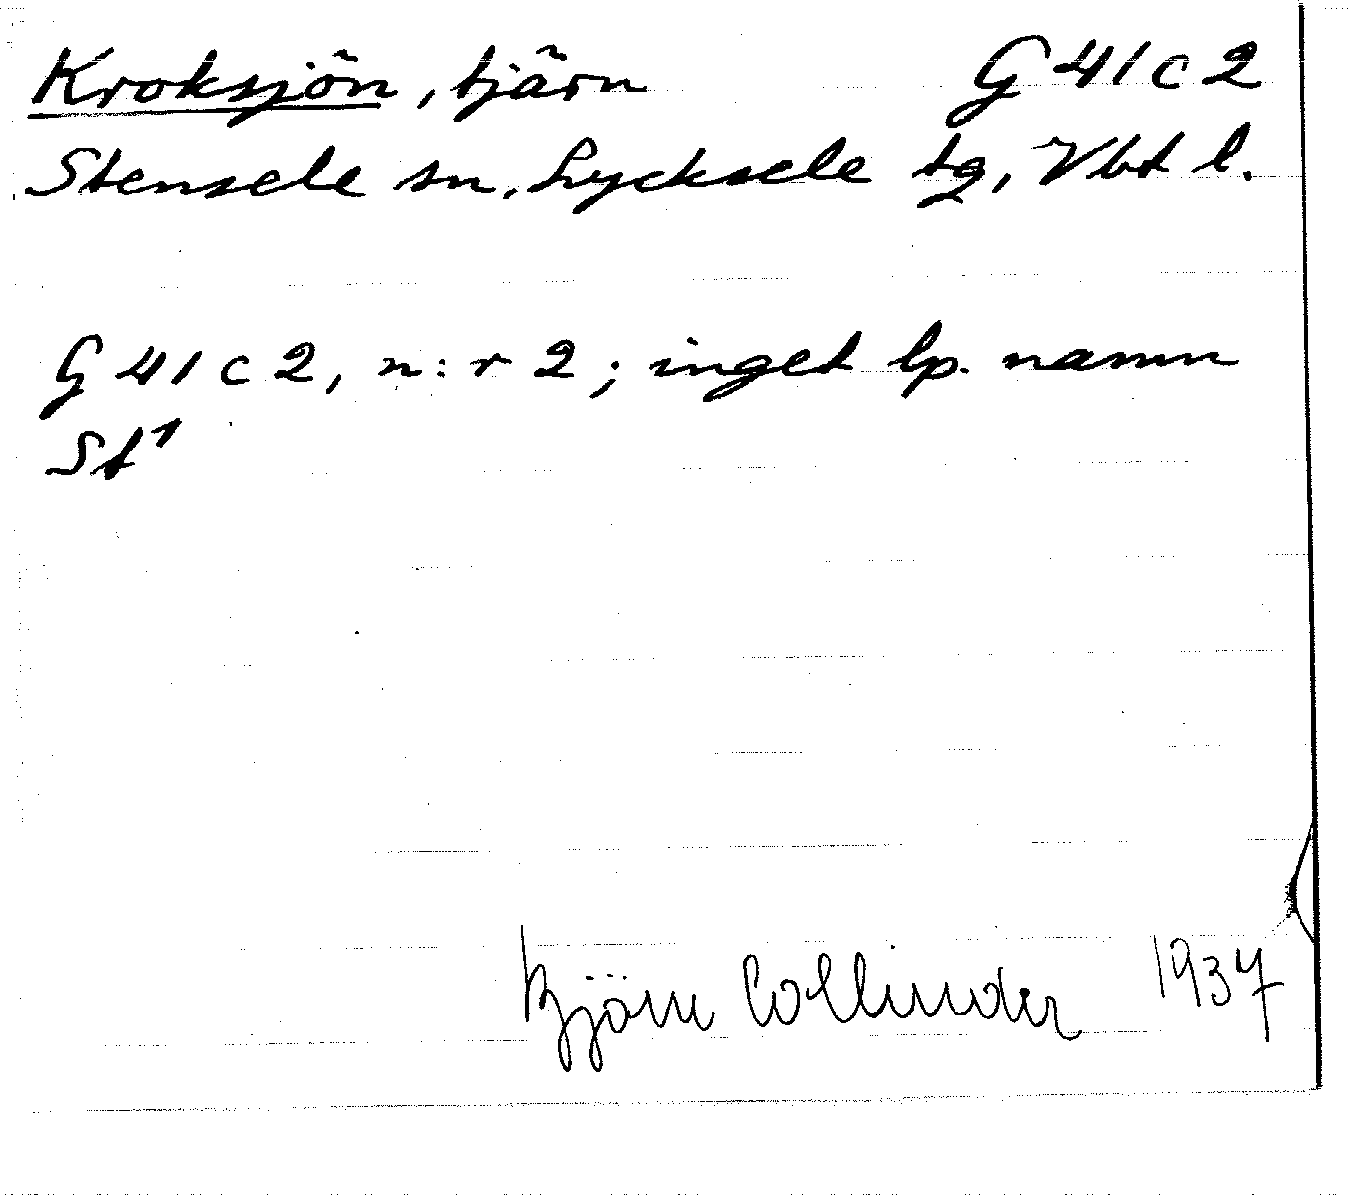 Kroksjön, tjärn G 41 c 2
Stensele sn, Lycksele tg, Vbt l.
G 41 c 2, n:r 2; inget lp. namn
St¹
Björn Collinder 1937